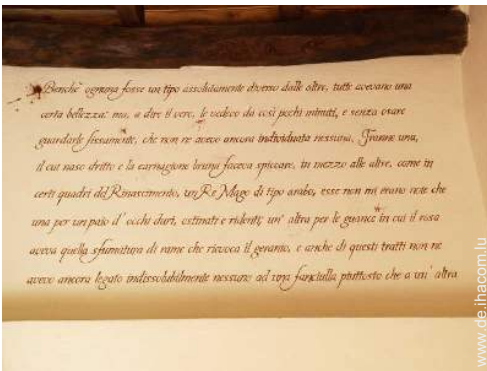 Benchè ognuna fosse un tipo assolutamente diverso dalle altre, tutte avevano una
certa bellezza: ma, a dire il vero, le vedevo da così pochi minuti, e senza osare
guardarle fissamente, che non ne avevo ancora individuata nessuna. Tranne una,
il cui naso dritto e la carnagione bruna faceva spiccare, in mezzo alle altre, come in
certi quadri del Rinascimento, un Re Mago di tipo arabo, esse non mi erano note che
una per un paio d' occhi duri, ostinati e ridenti; un' altra per le guance in cui il rosa
aveva quella sfumatura di rame che rievoca il geranio, e anche di questi tratti non ne
avevo ancora legato indissolubilmente nessuno ad una fanciulla piuttosto che a un' altra
www.de.ihacom.lu